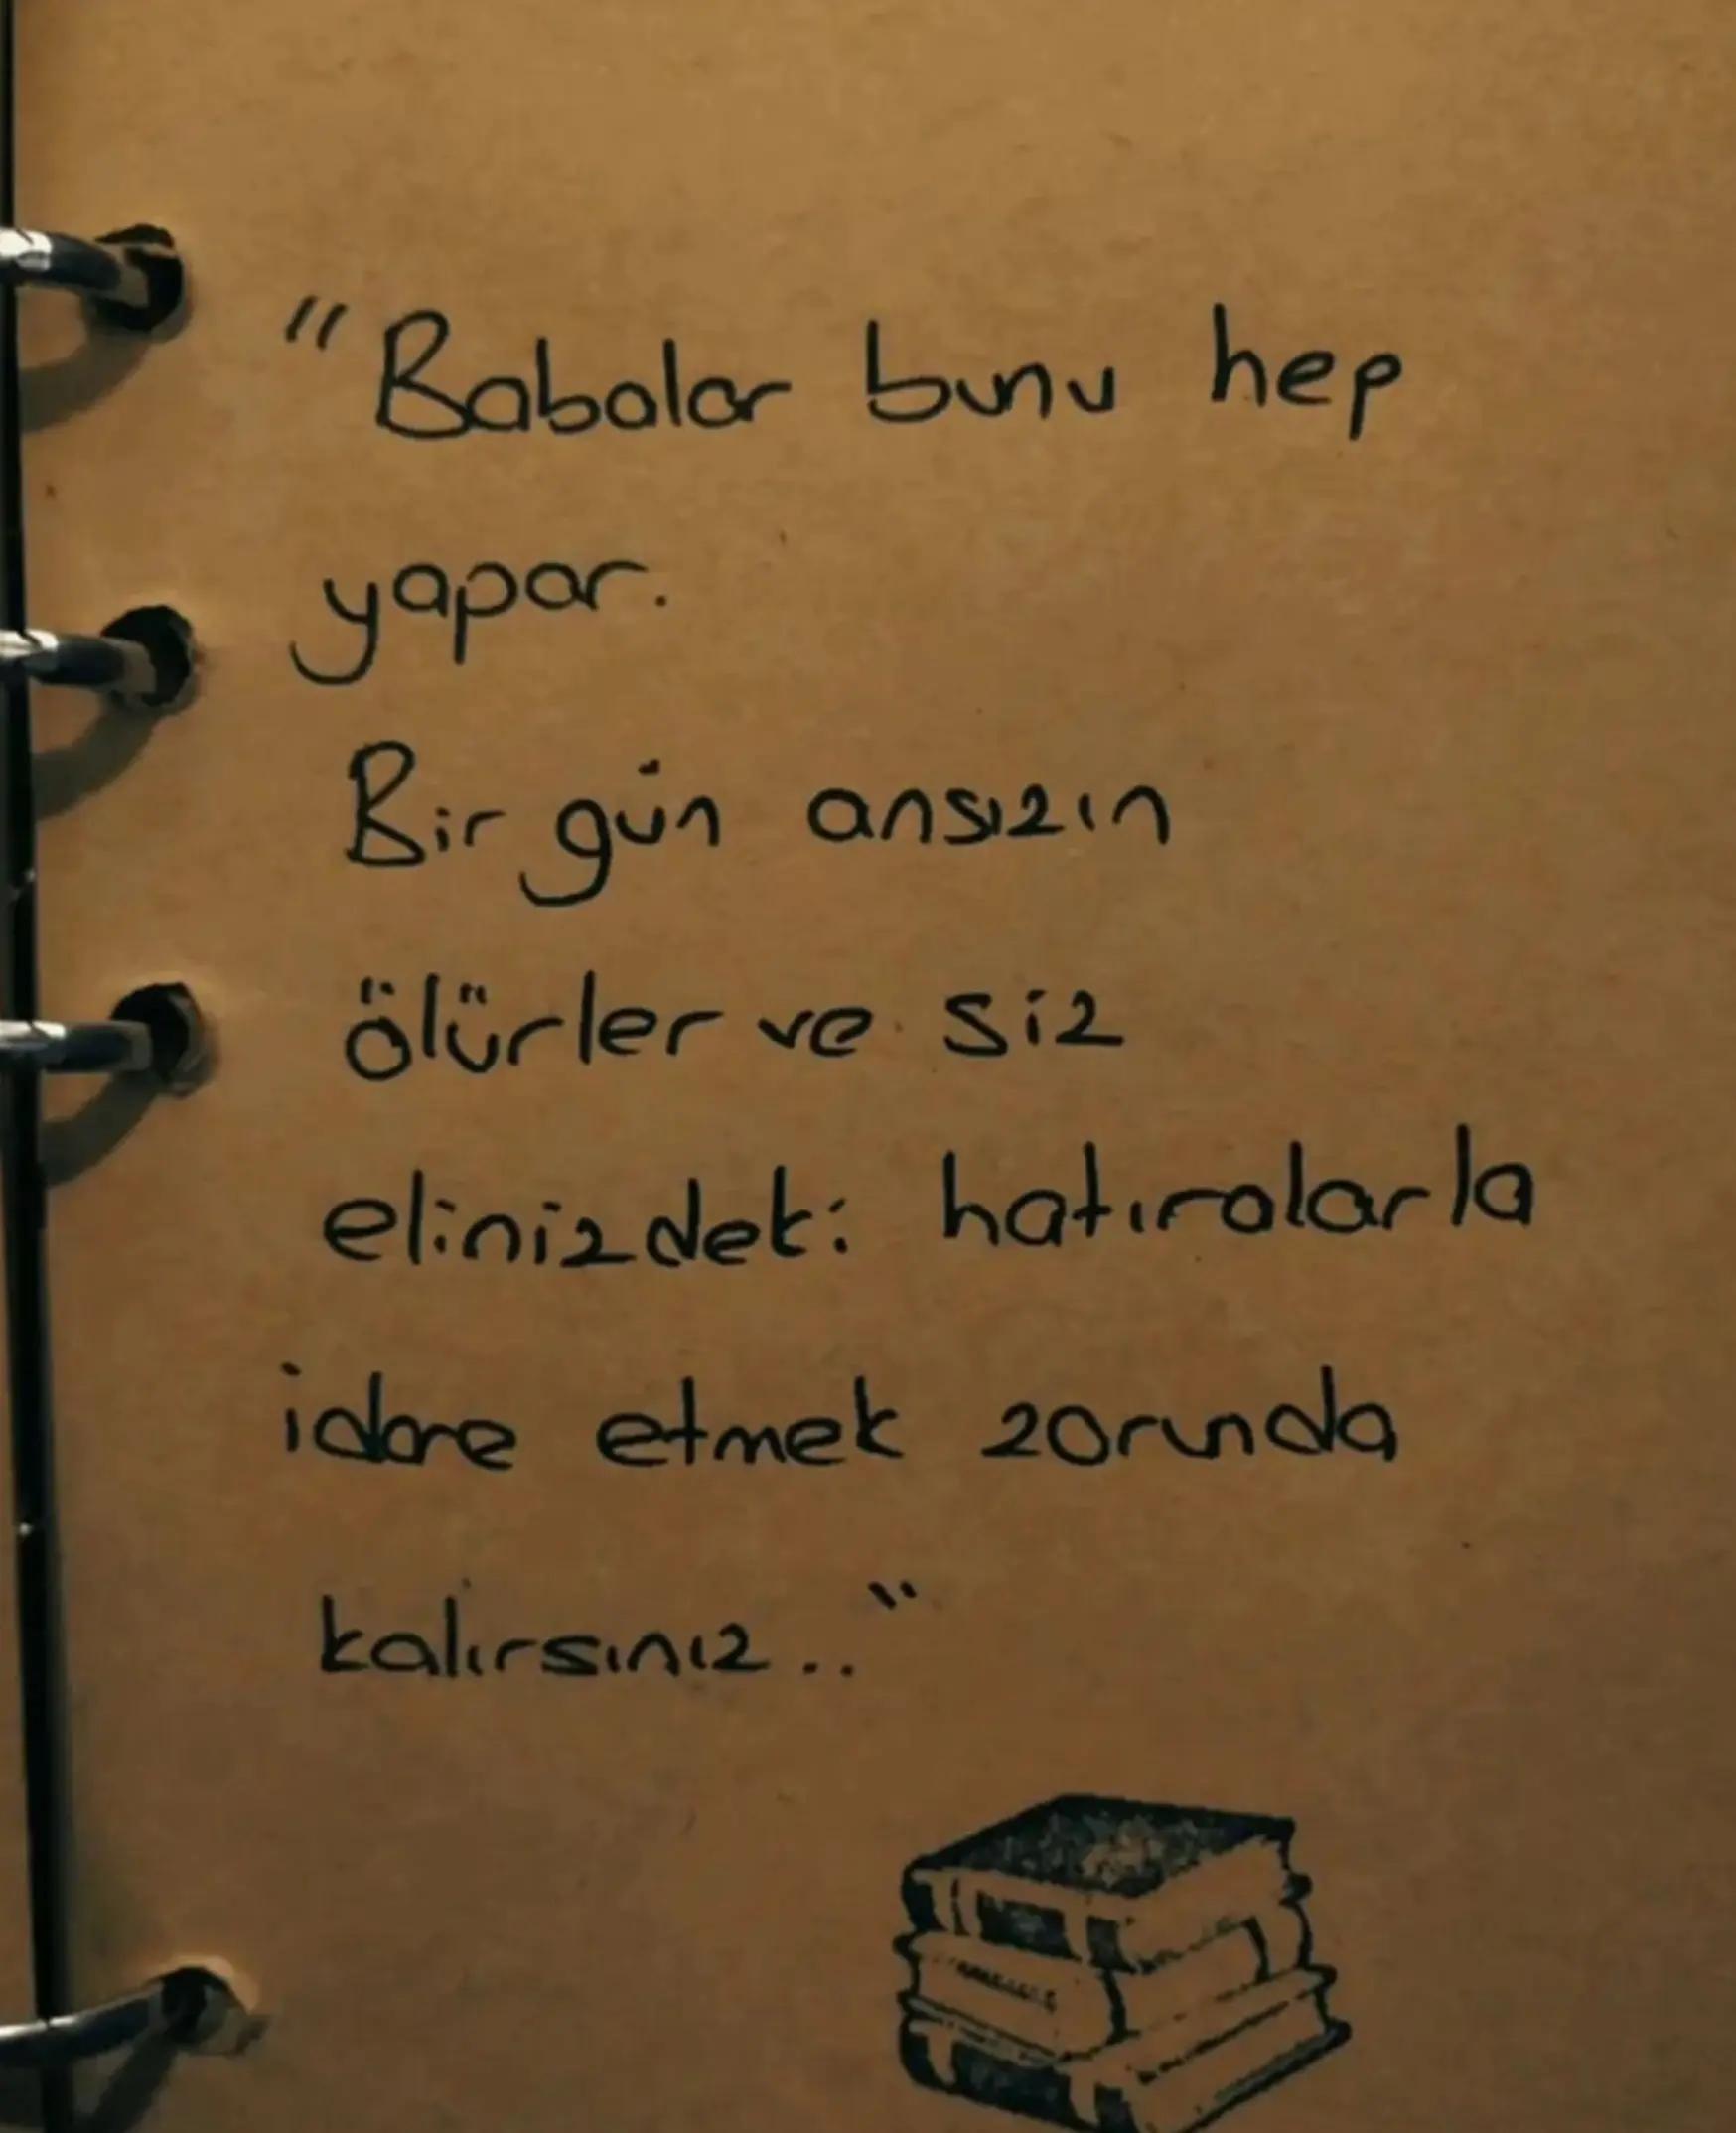 "Babalar bunu hep
yapar.
Bir gün ansızın
ölürler ve siz
elinizdeki hatıralarla
idare etmek zorunda
kalırsınız.."